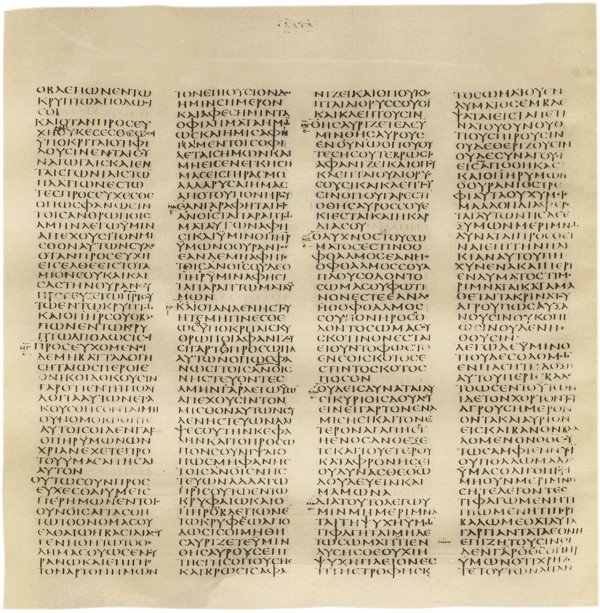 ΟΒΛΕΠΩΝΕΝΤΩ
ΚΡΥΠΤΩΑΠΟΔΩϹΙ
ϹΟΙ
ΚΑΙΟΤΑΝΠΡΟϹΕΥ
ΧΗΟΥΚΕϹΕϹΘΕΩϹ
ΥΠΟΚΡΙΤΑΙΟΤΙΦΙ
ΛΟΥϹΙΝΕΝΤΑΙϹϹΥ
ΝΑΓΩΓΑΙϹΚΑΙΕΝ
ΤΑΙϹΓΩΝΙΑΙϹΤΩ
ΠΛΑΤΙΩΝΕϹΤΩ
ΤΕϹΠΡΟϹΕΥΧΕϹΘΕ
ΟΠΩϹΦΑΝΩϹΙΝ
ΤΟΙϹΑΝΘΡΩΠΟΙϹ
ΑΜΗΝΛΕΓΩΥΜΙΝ
ΑΠΕΧΟΥϹΙΝΤΟΝΜΙ
ϹΘΟΝΑΥΤΩΝϹΥΔΕ
ΟΤΑΝΠΡΟϹΕΥΧΗ
ΕΙϹΕΛΘΕΕΙϹΤΟΤΑ
ΜΙΟΝϹΟΥΚΑΙΚΛΙ
ϹΑϹΤΗΝΘΥΡΑΝϹΟΥ
ΠΡΟϹΕΥΞΕΤΩΠΑΤΡΙϹΟΥ
ΤΩΕΝΤΩΚΡΥΠΤΩ
ΚΑΙΟΠΗΡϹΟΥΟΒΛΕ
ΠΩΝΕΝΤΩΚΡΥ
ΠΤΩΑΠΟΔΩϹΙϹΟΙ
ΠΡΟϹΕΥΧΟΜΕΝΟΙ
ΔΕΜΗΒΑΤΤΑΛΟΓΗ
ϹΗΤΑΙΩϹΠΕΡΟΙΕ
ΘΝΙΚΟΙΔΟΚΟΥϹΙΝ
ΓΑΡΟΤΙΕΝΤΗΠΟΛΥ
ΛΟΓΙΑΑΥΤΩΝΕΙϹΑ
ΚΟΥϹΘΗϹΟΝΤΑΙΜΗ
ΟΥΝΟΜΟΙΩΘΗΤΕ
ΑΥΤΟΙϹΟΙΔΕΝΓΑΡ
ΟΠΗΡΥΜΩΝΩΝ
ΧΡΙΑΝΕΧΕΤΕΠΡΟ
ΤΟΥΥΜΑϹΑΙΤΗϹΑΙ
ΑΥΤΟΝ
ΟΥΤΩϹΟΥΝΠΡΟϹ
ΕΥΧΕϹΘΑΙΥΜΕΙϹ
ΠΕΡΗΜΩΝΟΕΝΤΟΙϹ
ΟΥΝΟΙϹΑΓΙΑϹΘΗ
ΤΩΤΟΟΝΟΜΑϹΟΥ
ΕΛΘΑΤΩΗΒΑϹΙΛΙΑϹΟΥ
ΓΕΝΗΘΗΤΩΤΟΘΕ
ΛΗΜΑϹΟΥΩϹΕΝΟΥ
ΡΑΝΩΚΑΙΕΠΙΓΗϹ
ΤΟΝΑΡΤΟΝΗΜΩΝ
ΤΟΝΕΠΙΟΥϹΙΟΝΔΟϹ
ΗΜΙΝϹΗΜΕΡΟΝ
ΚΑΙΑΦΕϹΗΜΙΝΤΑ
ΟΦΙΛΗΜΑΤΑΗΜΩ
ΩϹΚΑΙΗΜΙϹΑΦΗ
ΚΑΜΕΝΤΟΙϹΟΦΙ
ΛΕΤΑΙϹΗΜΩΝΚΑΙ
ΜΗΕΙϹΕΝΕΓΚΗϹΗ
ΜΑϹΕΙϹΠΙΡΑϹΜΟ
ΑΛΛΑΡΥϹΑΙΗΜΑϹ
ΑΠΟΤΟΥΠΟΝΗΡΟΥ
ΕΑΝΓΑΡΑΦΗΤΑΙΤΟΙϹ
ΑΝΟΙϹΤΑΠΑΡΑΠΤΩ
ΜΑΤΑΑΥΤΩΝΑΦΗ
ϹΙΚΑΙΥΜΙΝΟΠΗΡ
ΥΜΩΝΟΟΥΡΑΝΙΟϹ
ΕΑΝΔΕΜΗΑΦΗΤΕ
ΤΟΙϹΑΝΟΙϹΟΥΔΕΟ
ΠΗΡΥΜΙΝΑΦΗϹΙ
ΤΑΠΑΡΑΠΤΩΜΑΤΑΥ
ΜΩΝ
ΟΤΑΝΔΕΝΗϹΤΕΥ
ΗΤΕΜΗΓΙΝΕϹΘΕ
ΩϹΟΙΥΠΟΚΡΙΤΑΙϹΚΥ
ΘΡΩΠΟΙΑΦΑΝΙΖΟΥ
ϹΙΓΑΡΤΟΠΡΟϹΩΠΟΝ
ΑΥΤΩΝΟΠΩϹΦΑ
ΝΩϹΙΤΟΙϹΑΝΟΙϹ
ΝΗϹΤΕΥΟΝΤΕϹ
ΑΜΗΝΓΑΡΛΕΓΩΥΜΙ
ΑΠΕΧΟΥϹΙΝΤΟΝ
ΜΙϹΘΟΝΑΥΤΩΝϹΥ
ΔΕΝΗϹΤΕΥΩΝΑΛΙ
ΨΕϹΟΥΤΗΝΚΕΦΑ
ΛΗΝΚΑΙΤΟΠΡΟϹΩ
ΠΟΝϹΟΥΝΙΨΑΙΟ
ΠΩϹΜΗΦΑΝΗϹ
ΤΟΙϹΑΝΟΙϹΝΗϹ
ΤΕΥΩΝΑΛΛΑΤΩ
ΠΡΙϹΟΥΤΩΕΝΤΩ
ΚΡΥΦΑΙΩΚΑΙΟ
ΠΗΡϹΟΥΟΒΛΕΠΩΝΕΝ
ΤΩΚΡΥΦΑΙΩΑΠΟ
ΔΩϹΙϹΟΙΜΗΘΗ
ϹΑΥΡΙΖΕΤΕΥΜΙΝ
ΘΗϹΑΥΡΟΥϹΕΠΙ
ΤΗϹΓΗϹΟΠΟΥϹΗϹ
ΚΑΙΒΡΩϹΙϹΑΦΑ
ΝΙΖΕΙΚΑΙΟΠΟΥΚΛΕ
ΠΤΑΙΔΙΟΡΥϹϹΟΥϹΙ
ΚΑΙΚΛΕΠΤΟΥϹΙΝ
ΘΗϹΑΥΡΙΖΕΤΕΔΕΥ
ΜΙΝΘΗϹΑΥΡΟΥϹ
ΕΝΟΥΝΩΟΠΟΥΟΥ
ΤΕϹΗϹΟΥΤΕΒΡΩϹΙϹ
ΑΦΑΝΙΖΕΙΚΑΙΟΠΟΥ
ΚΛΕΠΤΑΙΟΥΔΙΟΡΥϹ
ϹΟΥϹΙΚΑΙΚΛΕΠΤΟΥ
ϹΙΝΟΠΟΥΓΑΡΕϹΤΙ
ΟΘΗϹΑΥΡΟϹϹΟΥΕ
ΚΕΙΕϹΤΑΙΚΑΙΗΚΑΡ
ΔΙΑϹΟΥ
ΟΛΥΧΝΟϹΤΟΥϹΩ
ΜΑΤΟϹΕϹΤΙΝΟΟ
ΦΘΑΛΜΟϹΕΑΝΗΝ
ΟΟΦΘΑΛΜΟϹϹΟΥΑ
ΠΛΟΥϹΟΛΟΝΤΟ
ϹΩΜΑϹΟΥΦΩΤΙ
ΝΟΝΕϹΤΕΕΑΝΔΕ
ΗΟΟΦΘΑΛΜΟϹ
ϹΟΥΠΟΝΗΡΟϹΟ
ΛΟΝΤΟϹΩΜΑϹΟΥ
ϹΚΟΤΙΝΟΝΕϹΤΑΙ
ΕΙΟΥΝΤΟΦΩϹΤΟ
ΕΝϹΟΙϹΚΟΤΟϹΕ
ϹΤΙΝΤΟϹΚΟΤΟϹ
ΠΟϹΟΝ
ΟΥΔΕΙϹΔΥΝΑΤΑΙΔΥ
ϹΙΚΥΡΙΟΙϹΔΟΥΛΕΥΙ
ΕΙΝΗΓΑΡΤΟΝΕΝΑ
ΜΙϹΗϹΙΚΑΙΤΟΝΕ
ΤΕΡΟΝΑΓΑΠΗϹΙΗ
ΕΝΟϹΑΝΘΕΞΕ
ΤΕΚΑΙΤΟΥΕΤΕΡΟΥ
ΚΑΤΑΦΡΟΝΗϹΕΙ
ΟΥΔΥΝΑϹΘΕΘΩΔΟΥ
ΛΕΥΕΙΝΚΑΙ
ΜΑΜΩΝΑ
ΔΙΑΤΟΥΤΟΛΕΓΩΥ
ΜΙΝΜΗΜΕΡΙΜΝΑ
ΤΑΙΤΗΨΥΧΗΥΜΩ
ΤΙΦΑΓΗΤΑΙΜΗΔΕ
ΤΩϹΩΜΑΤΙΤΙΕΝ
ΔΥϹΗϹΘΕΟΥΧΙΗ
ΨΥΧΗΠΛΕΙΟΝΕϹ
ΤΙΤΗϹΤΡΟΦΗϹΚΑΙ
ΤΟϹΩΜΑΤΟΥΕΝ
ΔΥΜΑΤΟϹΕΜΒΛΕ
ΨΑΤΑΙΕΙϹΤΑΠΕΤΙ
ΝΑΤΟΥΟΥΝΟΥΟΤΙ
ΟΥϹΠΙΡΟΥϹΙΝ
ΟΥΔΕΘΕΡΙΖΟΥϹΙΝ
ΟΥΔΕϹΥΝΑΓΟΥϹΙΝ
ΕΙϹΑΠΟΘΗΚΑϹ
ΚΑΙΟΠΗΡΥΜΩΝ
ΟΟΥΡΑΝΙΟϹΤΡΕ
ΦΙΑΥΤΑΟΥΧΥΜΙϹ
ΜΑΛΛΟΝΔΙΑΦΕΡΕ
ΤΑΙΑΥΤΩΝΤΙϹΔΕΕ
ΞΥΜΩΝΜΕΡΙΜΝΩ
ΔΥΝΑΤΑΙΠΡΟϹΘΕ
ΝΑΙΕΠΙΤΗΝΗΛΙ
ΚΙΑΝΑΥΤΟΥΠΗ
ΧΥΝΕΝΑΚΑΙΠΕΡΙ
ΕΝΔΥΜΑΤΟϹΤΙΜΕ
ΡΙΜΝΑΤΑΙΚΑΤΑΜΑ
ΘΕΤΑΙΤΑΚΡΙΝΑΤΟΥ
ΑΓΡΟΥΠΩϹΑΥΞΑ
ΝΟΥϹΙΝΟΥΚΟΠΙ
ΝΗΘΟΥϹΙΝ
ΛΕΓΩΔΕΥΜΙΝΟ
ΤΙΟΥΔΕϹΟΛΟΜΩ
ΕΝΠΑϹΗΤΗΔΟΞΗ
ΑΥΤΟΥΠΕΡΙΕΒΑΛΕ
ΤΟΩϹΕΝΤΟΥΤΩΝ
ΕΙΔΕΤΟΝΧΟΡΤΟΝΤΟΥ
ΑΓΡΟΥϹΗΜΕΡΟΝ
ΟΝΤΑΚΑΙΑΥΡΙΟΝ
ΕΙϹΚΛΙΒΑΝΟΝΒΑΛ
ΛΟΜΕΝΟΝΟΘϹΟΥ
ΤΩϹΑΜΦΙΕΝΝΥϹΙ
ΟΥΠΟΛΛΩΜΑΛΛΟ
ΥΜΑϹΟΛΙΓΟΠΙϹΤΟΙ
ΜΗΟΥΝΜΕΡΙΜΝΗ
ϹΗΤΕΛΕΓΟΝΤΕϹ
ΤΙΦΑΓΩΜΕΝΗΤΙ
ΠΙΩΜΕΝΗΤΙΠΕΡΙ
ΒΑΛΩΜΕΘΑΤΑΥΤΑ
ΓΑΡΠΑΝΤΑΤΑΕΘΝΗ
ΕΠΙΖΗΤΟΥϹΙΝΟΙ
ΔΕΝΓΑΡΟΘϹΟΠΗΡ
ΥΜΩΝΟΤΙΧΡΗΖΕ
ΤΕΤΟΥΤΩΝΑΠΑΝ